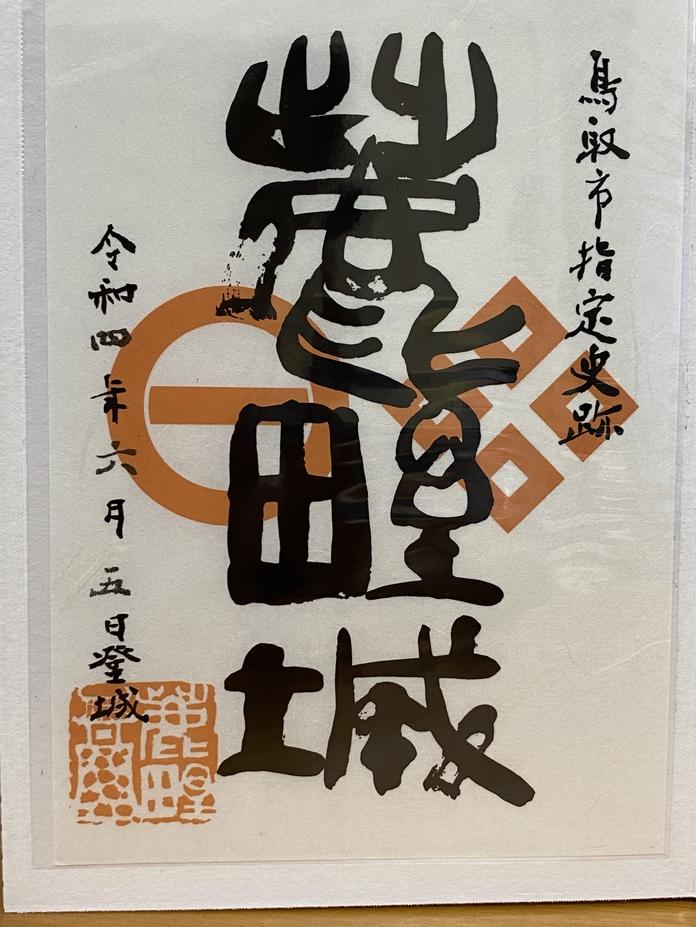 鳥取市指定史跡
城
令和四年六月五日登城